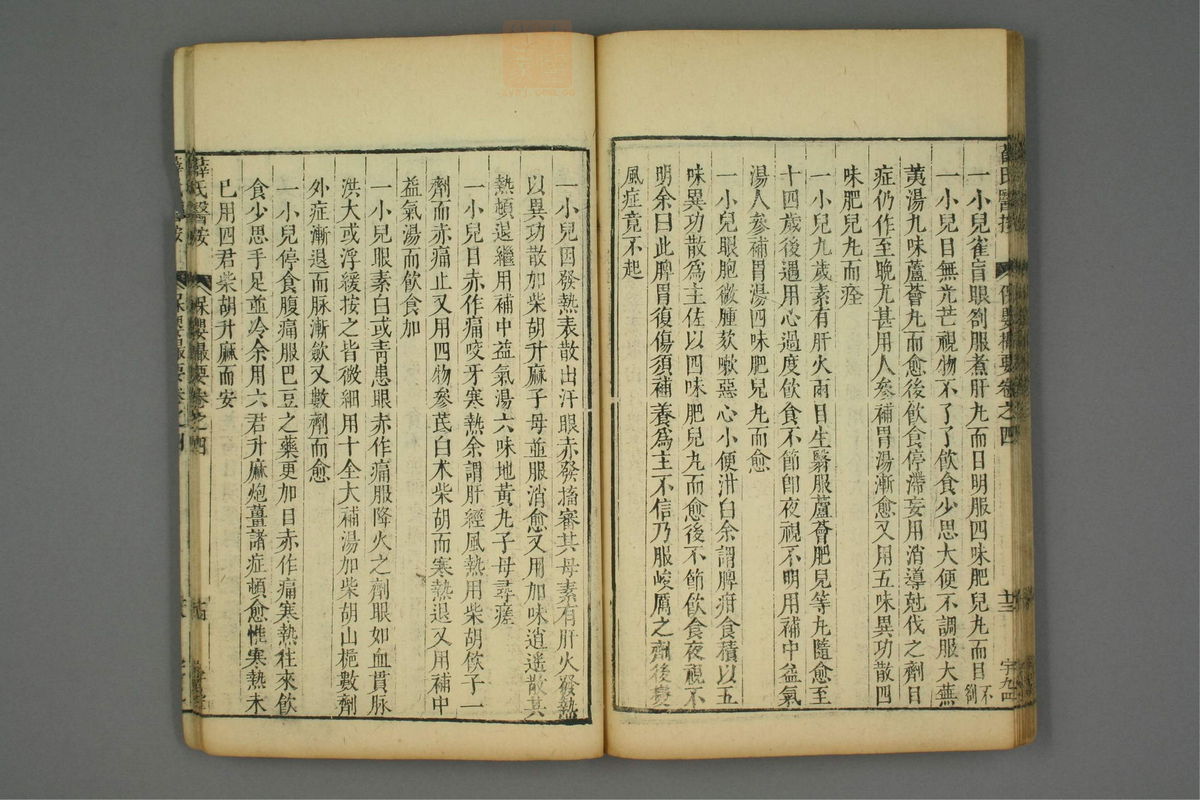 薛氏醫按
保嬰撮要卷之四
十三
字九四
一小兒雀盲眼劄服煮肝丸而目明服四味肥兒丸而目不劄
一小兒目無光芒視物不了了飲食少思大便不調服大蕪
荑湯九味蘆薈丸而愈後飲食停滯妄用消導尅伐之劑目
症仍作至晚尤甚用人參補胃湯漸愈又用五味異功散四
味肥兒丸而痊
一小兒九歲素有肝火兩目生翳服蘆薈肥兒等丸隨愈至
十四歲後遇用心過度飲食不節卽夜視不明用補中益氣
湯人參補胃湯四味肥兒丸而愈
一小兒眼胞微腫欬嗽惡心小便泔白余謂脾疳食積以五
味異功散爲主佐以四味肥兒丸而愈後不節飲食夜視不
明余曰此脾胃復傷須補養爲主不信乃服峻厲之劑後變
風症竟不起
一小兒因發熱表散出汗眼赤發搐審其母素有肝火發熱
以異功散加柴胡升麻子母並服消愈又用加味逍遙散其
熱頓退繼用補中益氣湯六味地黃丸子母尋瘥
一小兒目赤作痛咬牙寒熱余謂肝經風熱用柴胡飲子一
劑而赤痛止又用四物參芪白朮柴胡而寒熱退又用補中
益氣湯而飲食加
一小兒眼素白或青患眼赤作痛服降火之劑眼如血貫脉
洪大或浮緩按之皆微細用十全大補湯加柴胡山梔數劑
外症漸退而脉漸斂又數劑而愈
一小兒停食腹痛服巴豆之藥更加目赤作痛寒熱往來飲
食少思手足並冷余用六君升麻炮薑諸症頓愈惟寒熱未
已用四君柴胡升麻而安
薛氏醫按
保嬰撮要卷之四